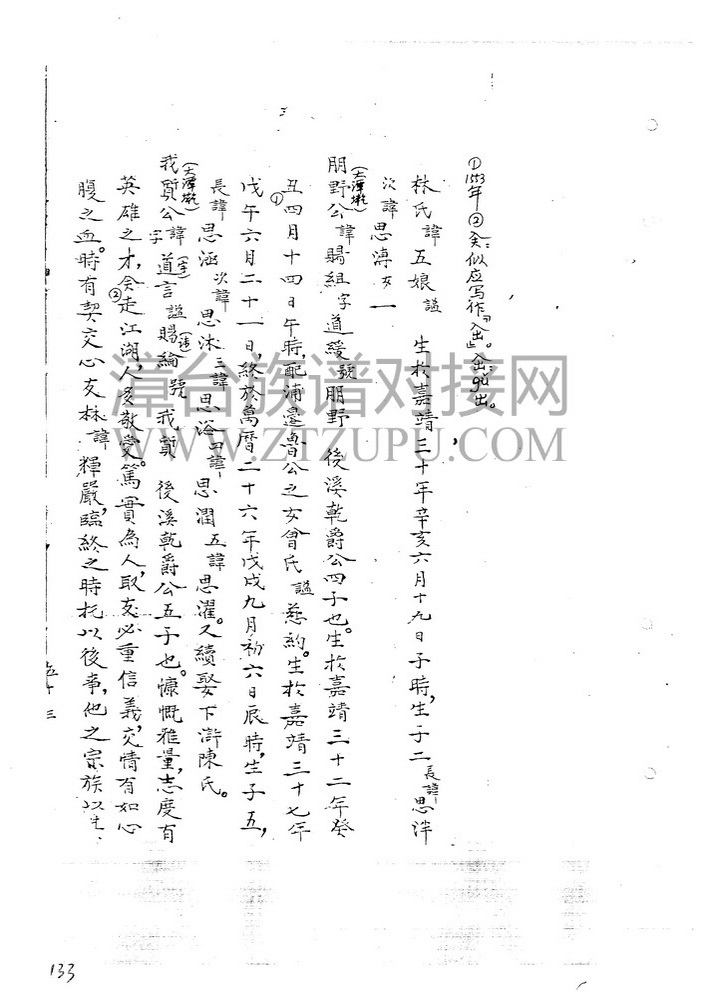 ①1553年②𠓛:似应写作"入出"。入出:gǔ出。
林氏諱五娘謚 生於嘉靖三十年辛亥六月十九日子時,生子二長諱思泮
次諱思溥女一
(大潭墘)
朋野公諱賜組字道緩號朋野 後溪乾爵公四子也。生於嘉靖三十二年癸
丑①四月十四日午時,配浦邊魯公之女曾氏謚慈約。生於嘉靖三十七年
戊午六月二十一日,終於萬曆二十六年戊戌九月初六日辰時,生子五,
長諱思涵次諱思沐三諱思浴四諱思潤五諱思濯。又續娶下滸陳氏。
(大潭墘)
我質公諱(字)道言(諱)賜綸號我質 後溪乾爵公五子也。慷慨雅量,志度有
英雄之才,②走江湖,人多敬愛。篤實為人,取友必重信義,交情有如心
腹之血。時有契交心友林諱輝嚴,臨終之時托以後事,他之宗族以
五十三
133
漳台族谱对接网
WWW.ZTZUPU.COM